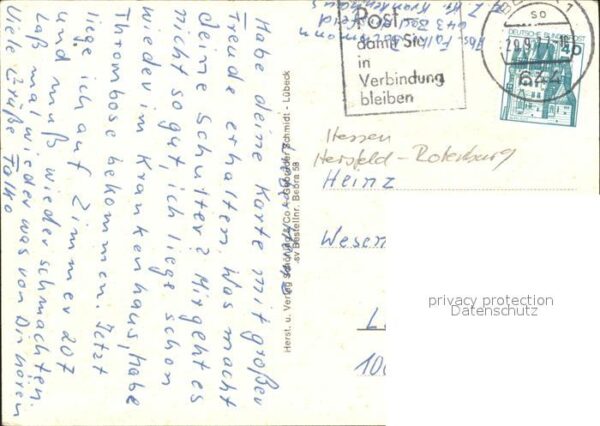 Habe deine Karte mit großer
Freude erhalten. Was macht
deine Schulter? Mir geht es
nicht so gut, ich liege schon
wieder im Krankenhaus, habe
Thrombose bekommen. Jetzt
liege ich auf Zimmer 207
und muß wieder schmachten.
Laß mal wieder was von Dir hören
Viele Grüße Falko
Abs. Falko
643 Bad
Krankenhaus
Herst. u. Verlag Schöning & Co + Gebrüder Schmidt - Lübeck
sv Bestellnr. Bebra 58
Post
damit Sie
in
Verbindung
bleiben
29.9.77
644
DEUTSCHE BUNDESPOST
40
Hessen
Hersfeld-Rotenburg
Heinz
Wesen
L
10
privacy protection
Datenschutz